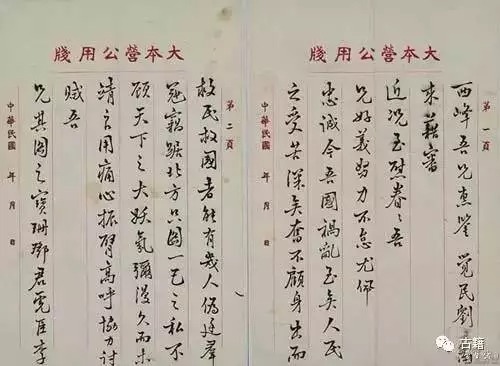 大本營公用牋
第一頁
西峰吾兄惠鑒 覺民劉
來藉審
近況至慰眷々吾
兄好義努力不怠尤佩
忠誠今吾國禍亂至矣人民
之受苦深矣奮不顧身出而
中華民國 年 月 日
大本營公用牋
第二頁
救民救國者能有幾人偽廷羣
寇竊踞北方只圖一己之私不
顧天下之大妖氣彌漫久而未
靖言用痛心振臂高呼協力討
賊吾
兄其圖之寶珊鄧君霓臣李
中華民國 年 月 日
古籍